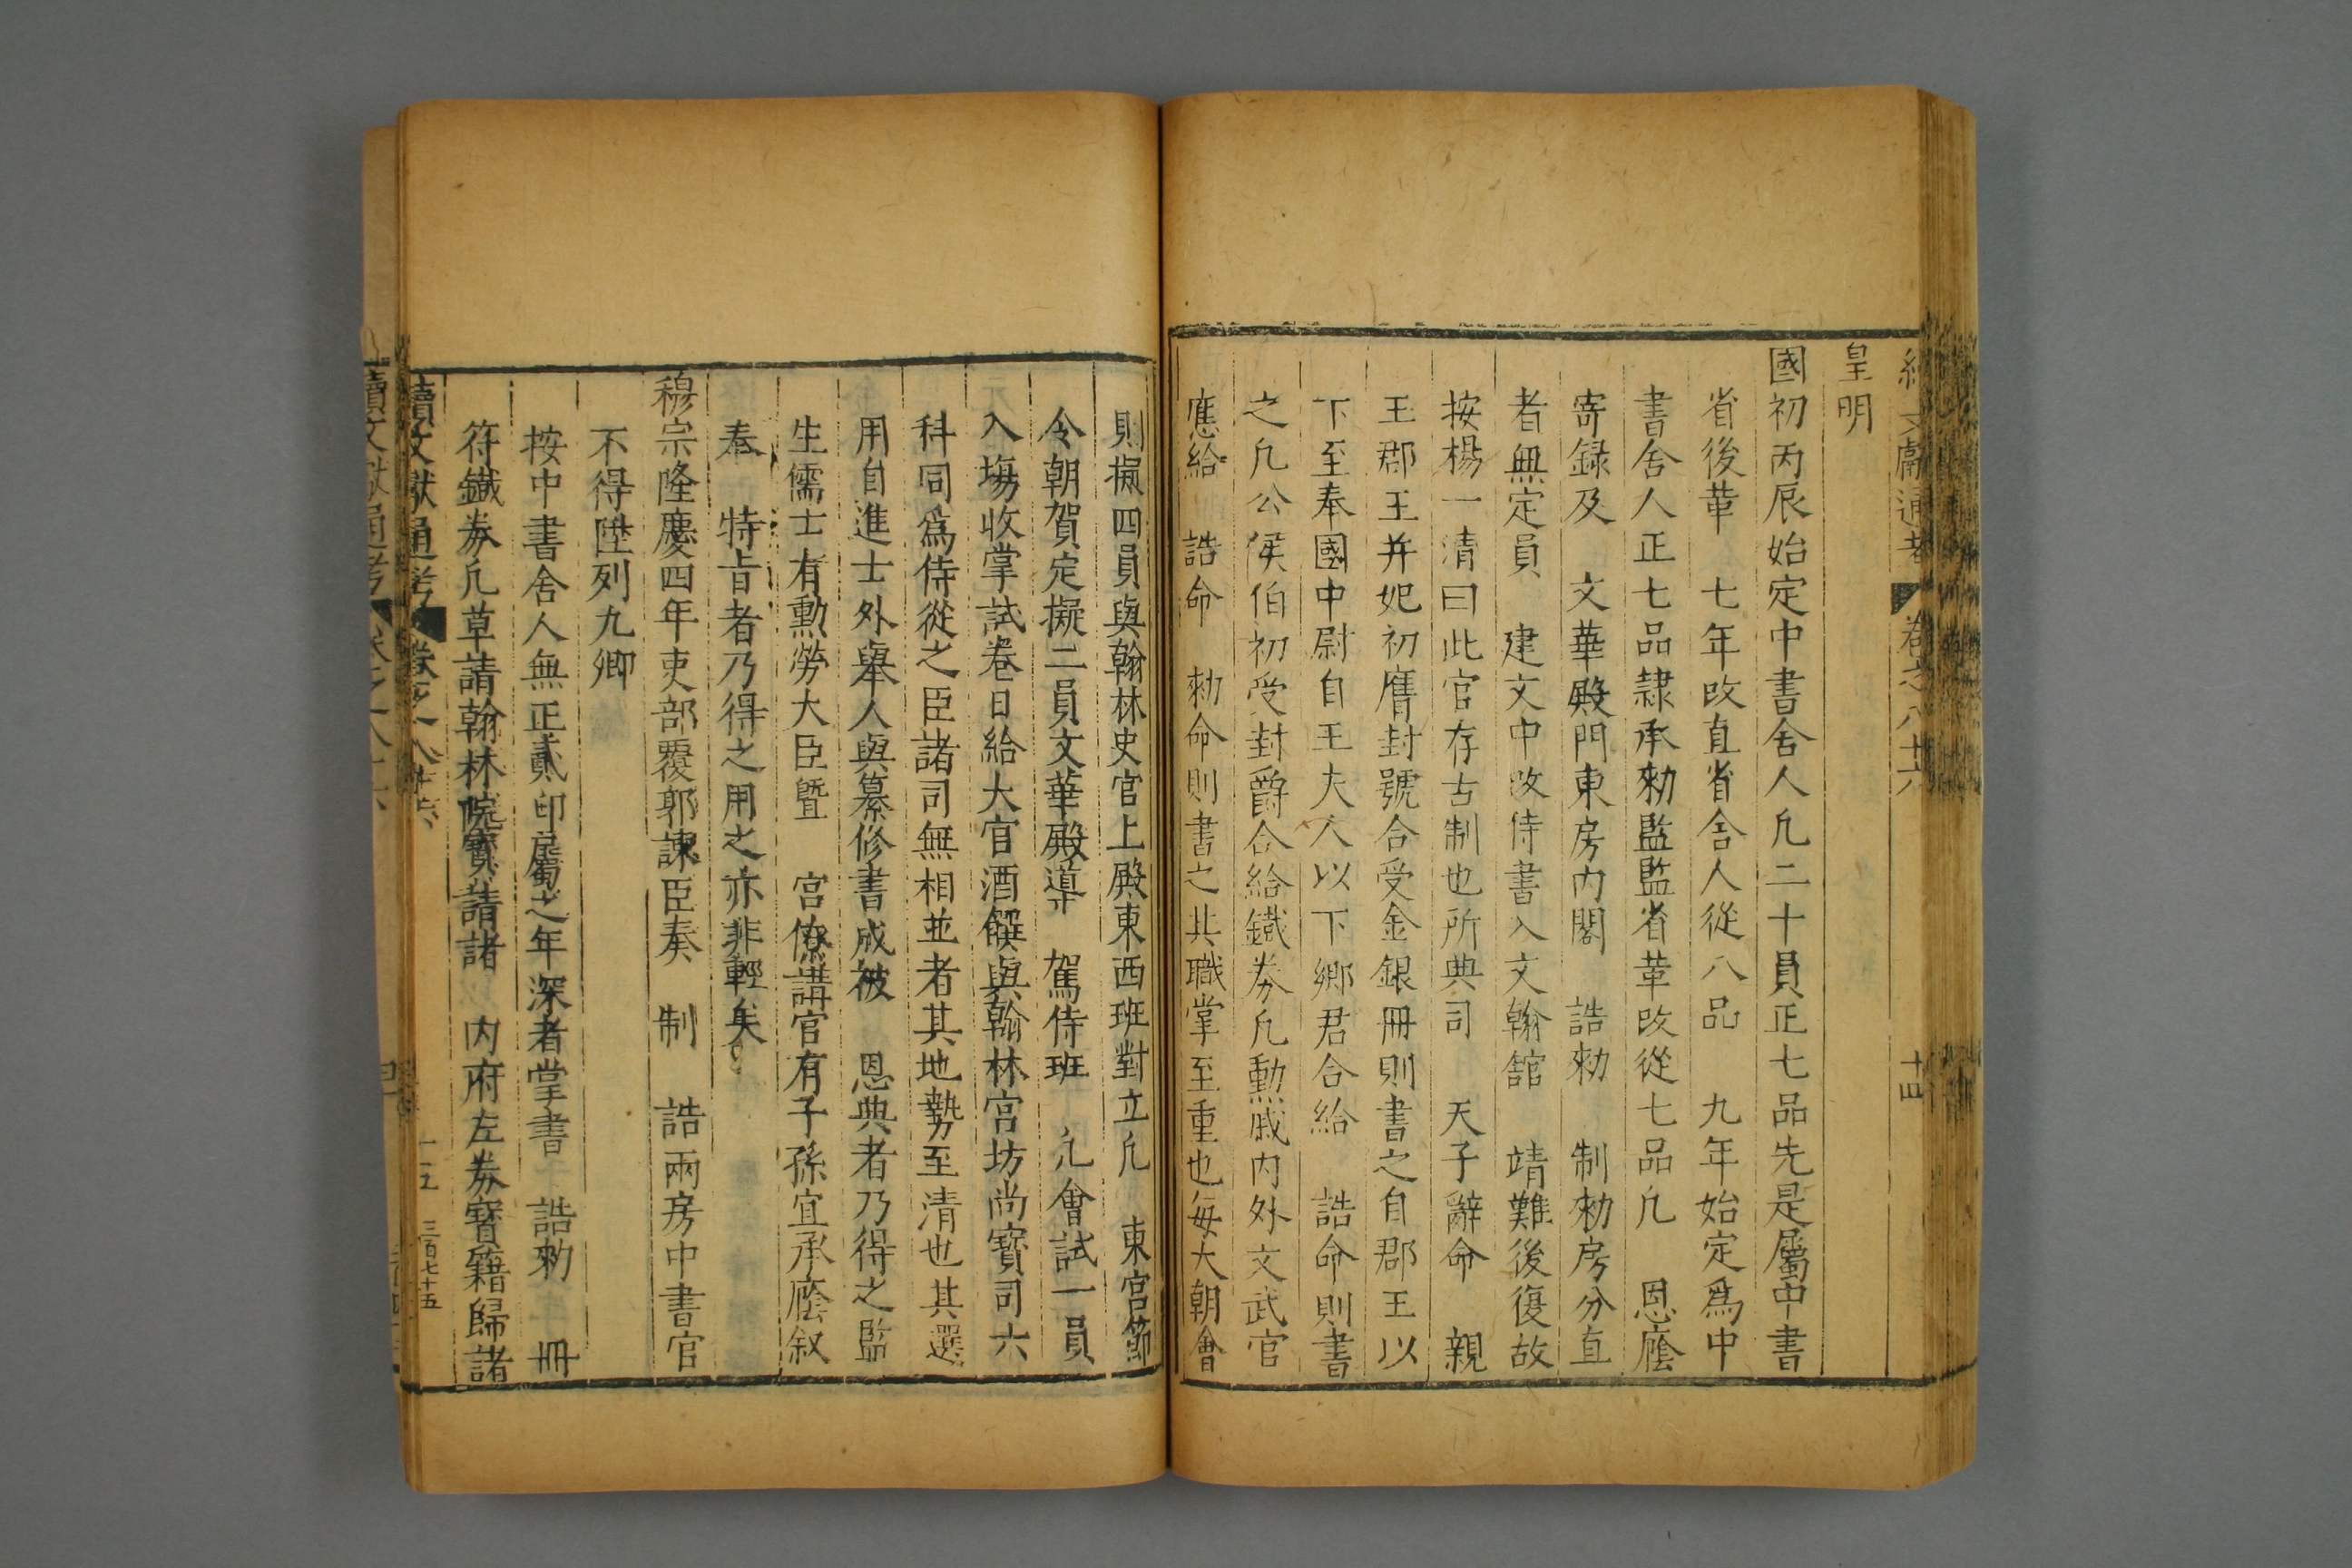 續文獻通考 卷之八十六 十四
皇明
國初丙辰始定中書舍人凡二十員正七品先是屬中書
省後革 七年改直省舍人從八品 九年始定爲中
書舍人正七品隷承勑監監省革改從七品凡 恩廕
寄録及 文華殿門東房内閣 誥勑 制勑房分直
者無定員 建文中改侍書入文翰舘 靖難後復故
按楊一清曰此官存古制也所典司 天子辭命 親
王郡王并妃初膺封號合受金銀冊則書之自郡王以
下至奉國中尉自王夫人以下鄉君合給 誥命則書
之凡公侯伯初受封爵合給鐵券凡勲戚内外文武官
應給 誥命 勑命則書之其職掌至重也每大朝會
則擬四員與翰林史官上殿東西班對立凡 東宮節
令朝賀定擬二員文華殿導 駕侍班 凡會試一員
入塲收掌試卷日給大官酒饌與翰林宮坊尚寶司六
科同爲侍從之臣諸司無相並者其地勢至清也其選
用自進士外舉人與纂修書成被 恩典者乃得之監
生儒士有勳勞大臣暨 宫僚講官有子孫宜承廕叙
奉 特旨者乃得之用之亦非輕矣
穆宗隆慶四年吏部覆郭諫臣奏 制 誥兩房中書官
不得陞列九卿
按中書舍人無正貳印屬之年深者掌書 誥勑 冊
符鐵券凡草請翰林院寶請諸 内府左券寶籍歸諸
續文獻通考 卷之八十六 十五 三百七十五